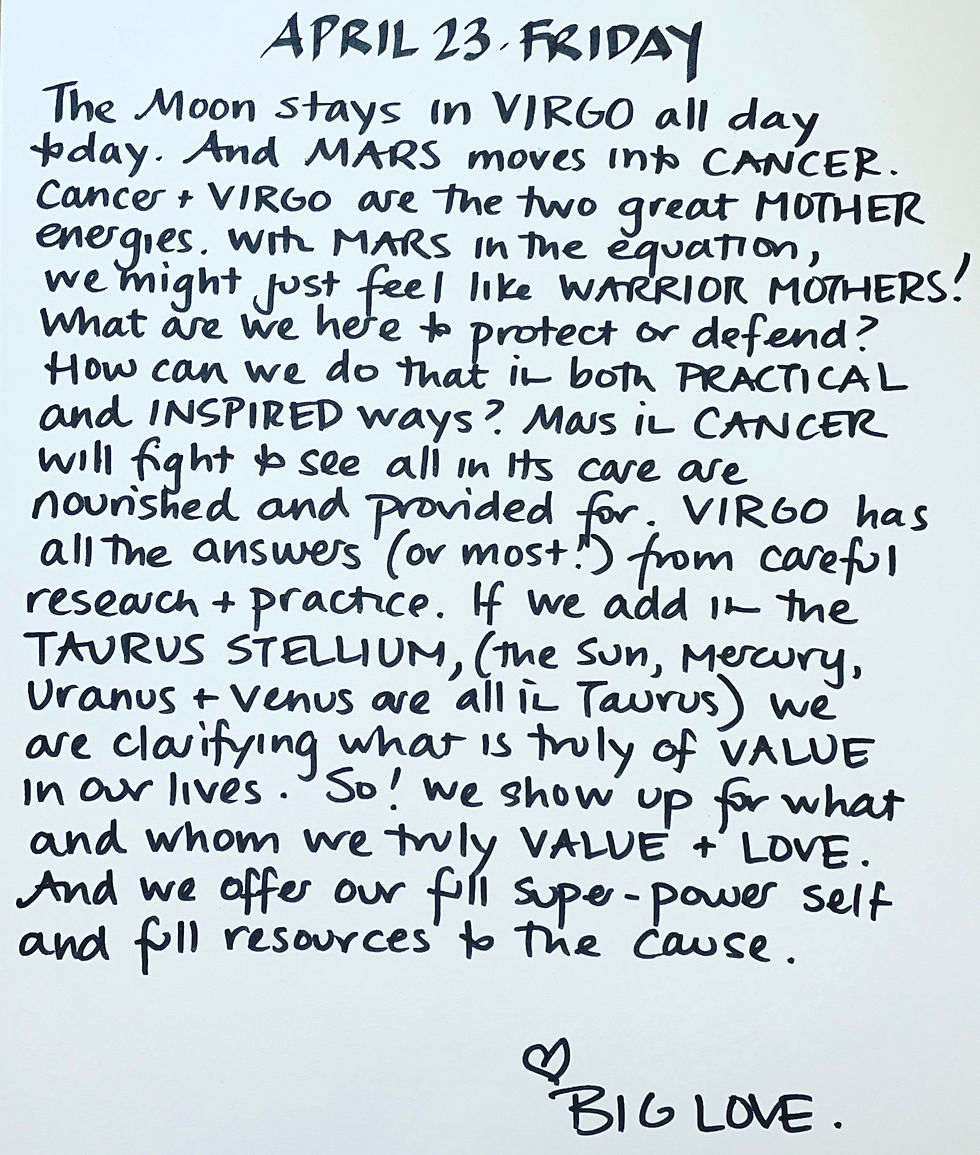 APRIL 23. FRIDAY
The Moon stays in VIRGO all day
today. And MARS moves into CANCER.
Cancer + VIRGO are the two great MOTHER
energies. With MARS in the equation,
we might just feel like WARRIOR MOTHERS!
What are we here to protect or defend?
How can we do that in both PRACTICAL
and INSPIRED ways? Mars in CANCER
will fight to see all in its care are
nourished and provided for. VIRGO has
all the answers (or most!) from careful
research + practice. If we add in the
TAURUS STELLIUM, (the Sun, Mercury,
Uranus + Venus are all in Taurus) we
are clarifying what is truly of VALUE
in our lives. So! We show up for what
and whom we truly VALUE + LOVE.
And we offer our full super-power self
and full resources to the cause.
♡
BIG LOVE.